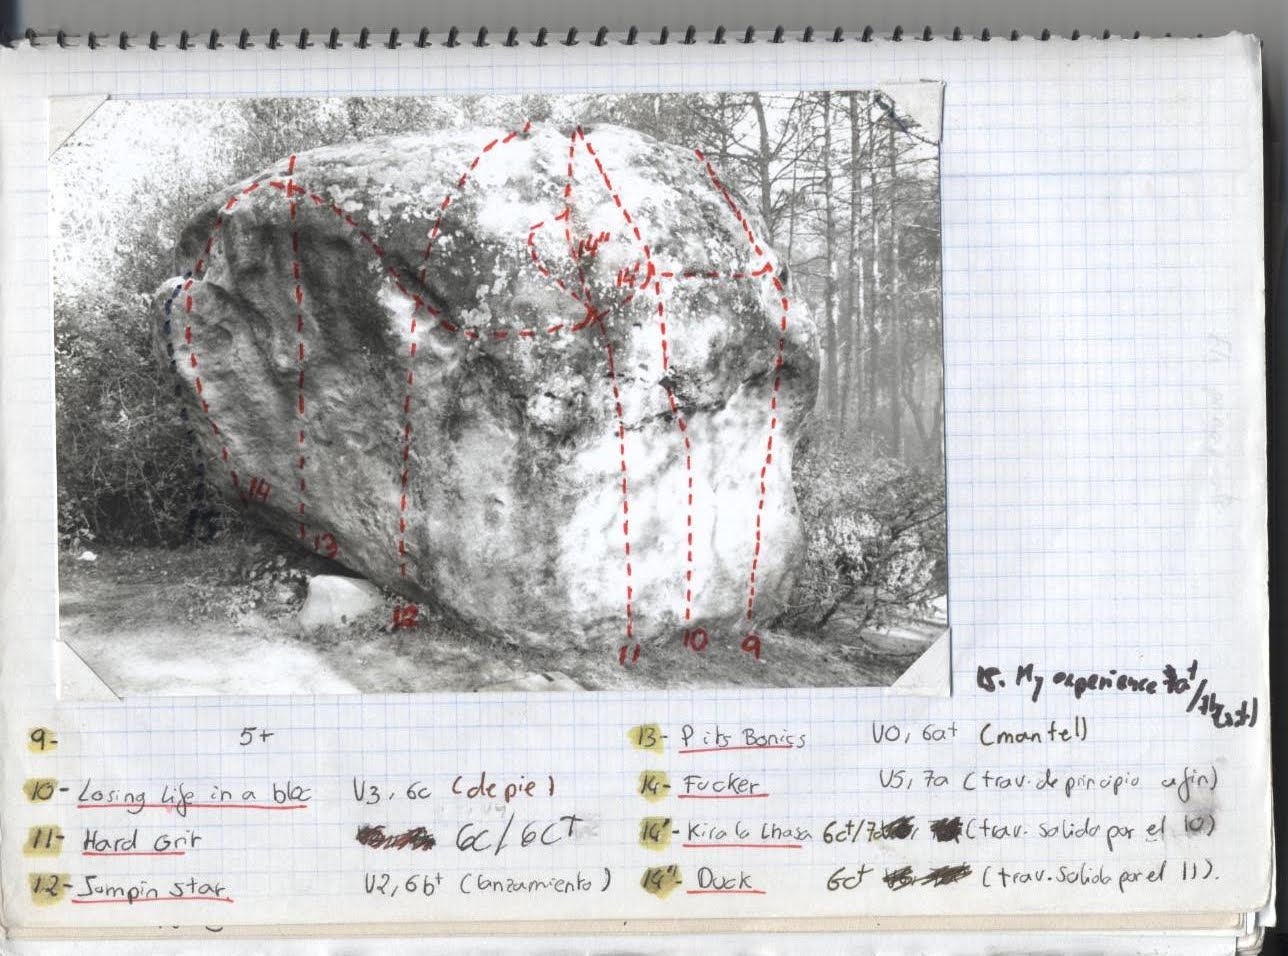 14"
14'
14
15
13
12
11
10
9
15. My experience 7a+/7b
9- 5+
10- Losing Life in a bloc V3, 6c (de pie)
11- Hard Grit 6c/6c+
12- Jumpin star V2, 6b+ (lanzamiento)
13- Pits Bonics V0, 6a+ (mantell)
14- Fucker V5, 7a (trav. de principio a fin)
14'- Kira la Lhasa 6c+/7a (trav. salida por el 10)
14"- Duck 6c+ (trav. salida por el 11).